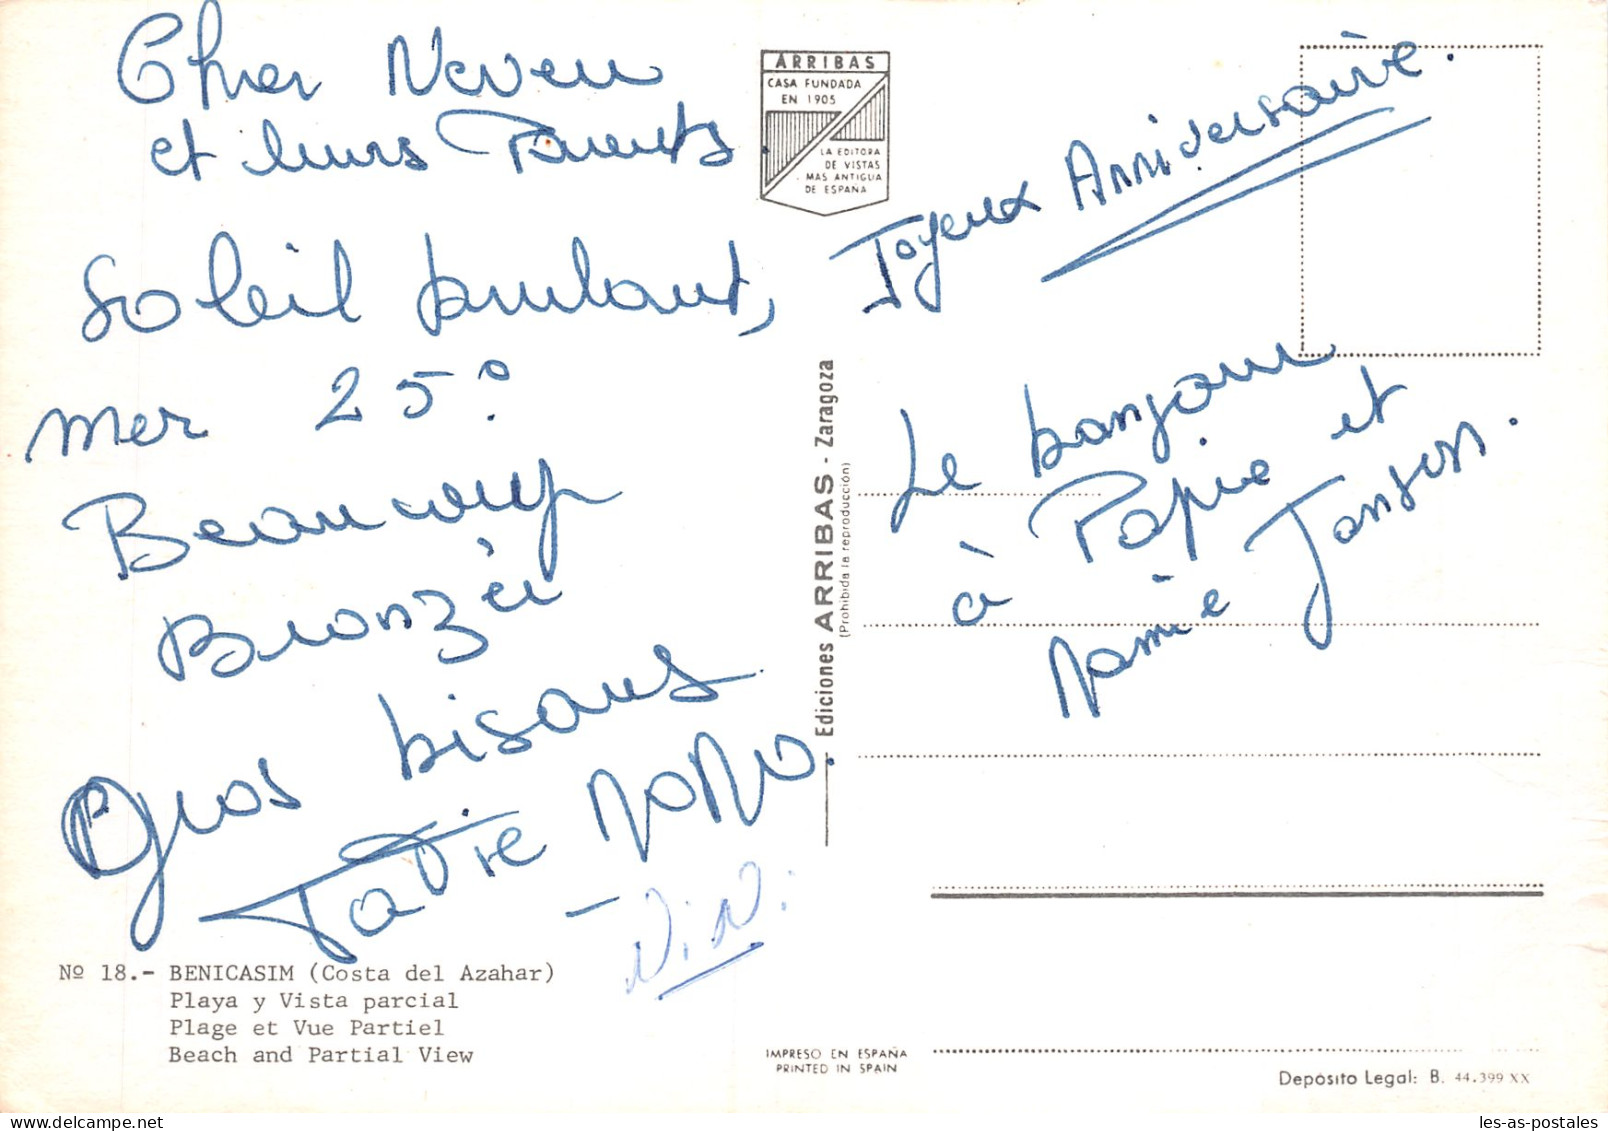 Cher Neveu
et leurs Parents.
Soleil brulant,
mer 25°.
Beaucoup
Bronzés
Gros bisous
Tatie NONO.
- N.N.
Joyeux Anniversaire.
Le bonjour
à Papie et
Mamie Janson.
ARRIBAS
CASA FUNDADA
EN 1905
LA EDITORA
DE VISTAS
MAS ANTIGUA
DE ESPAÑA
Ediciones ARRIBAS - Zaragoza
(Prohibida la reproducción)
Nº 18.- BENICASIM (Costa del Azahar)
Playa y Vista parcial
Plage et Vue Partiel
Beach and Partial View
IMPRESO EN ESPAÑA
PRINTED IN SPAIN
Depósito Legal: B. 44.399 XX
les-as-postales